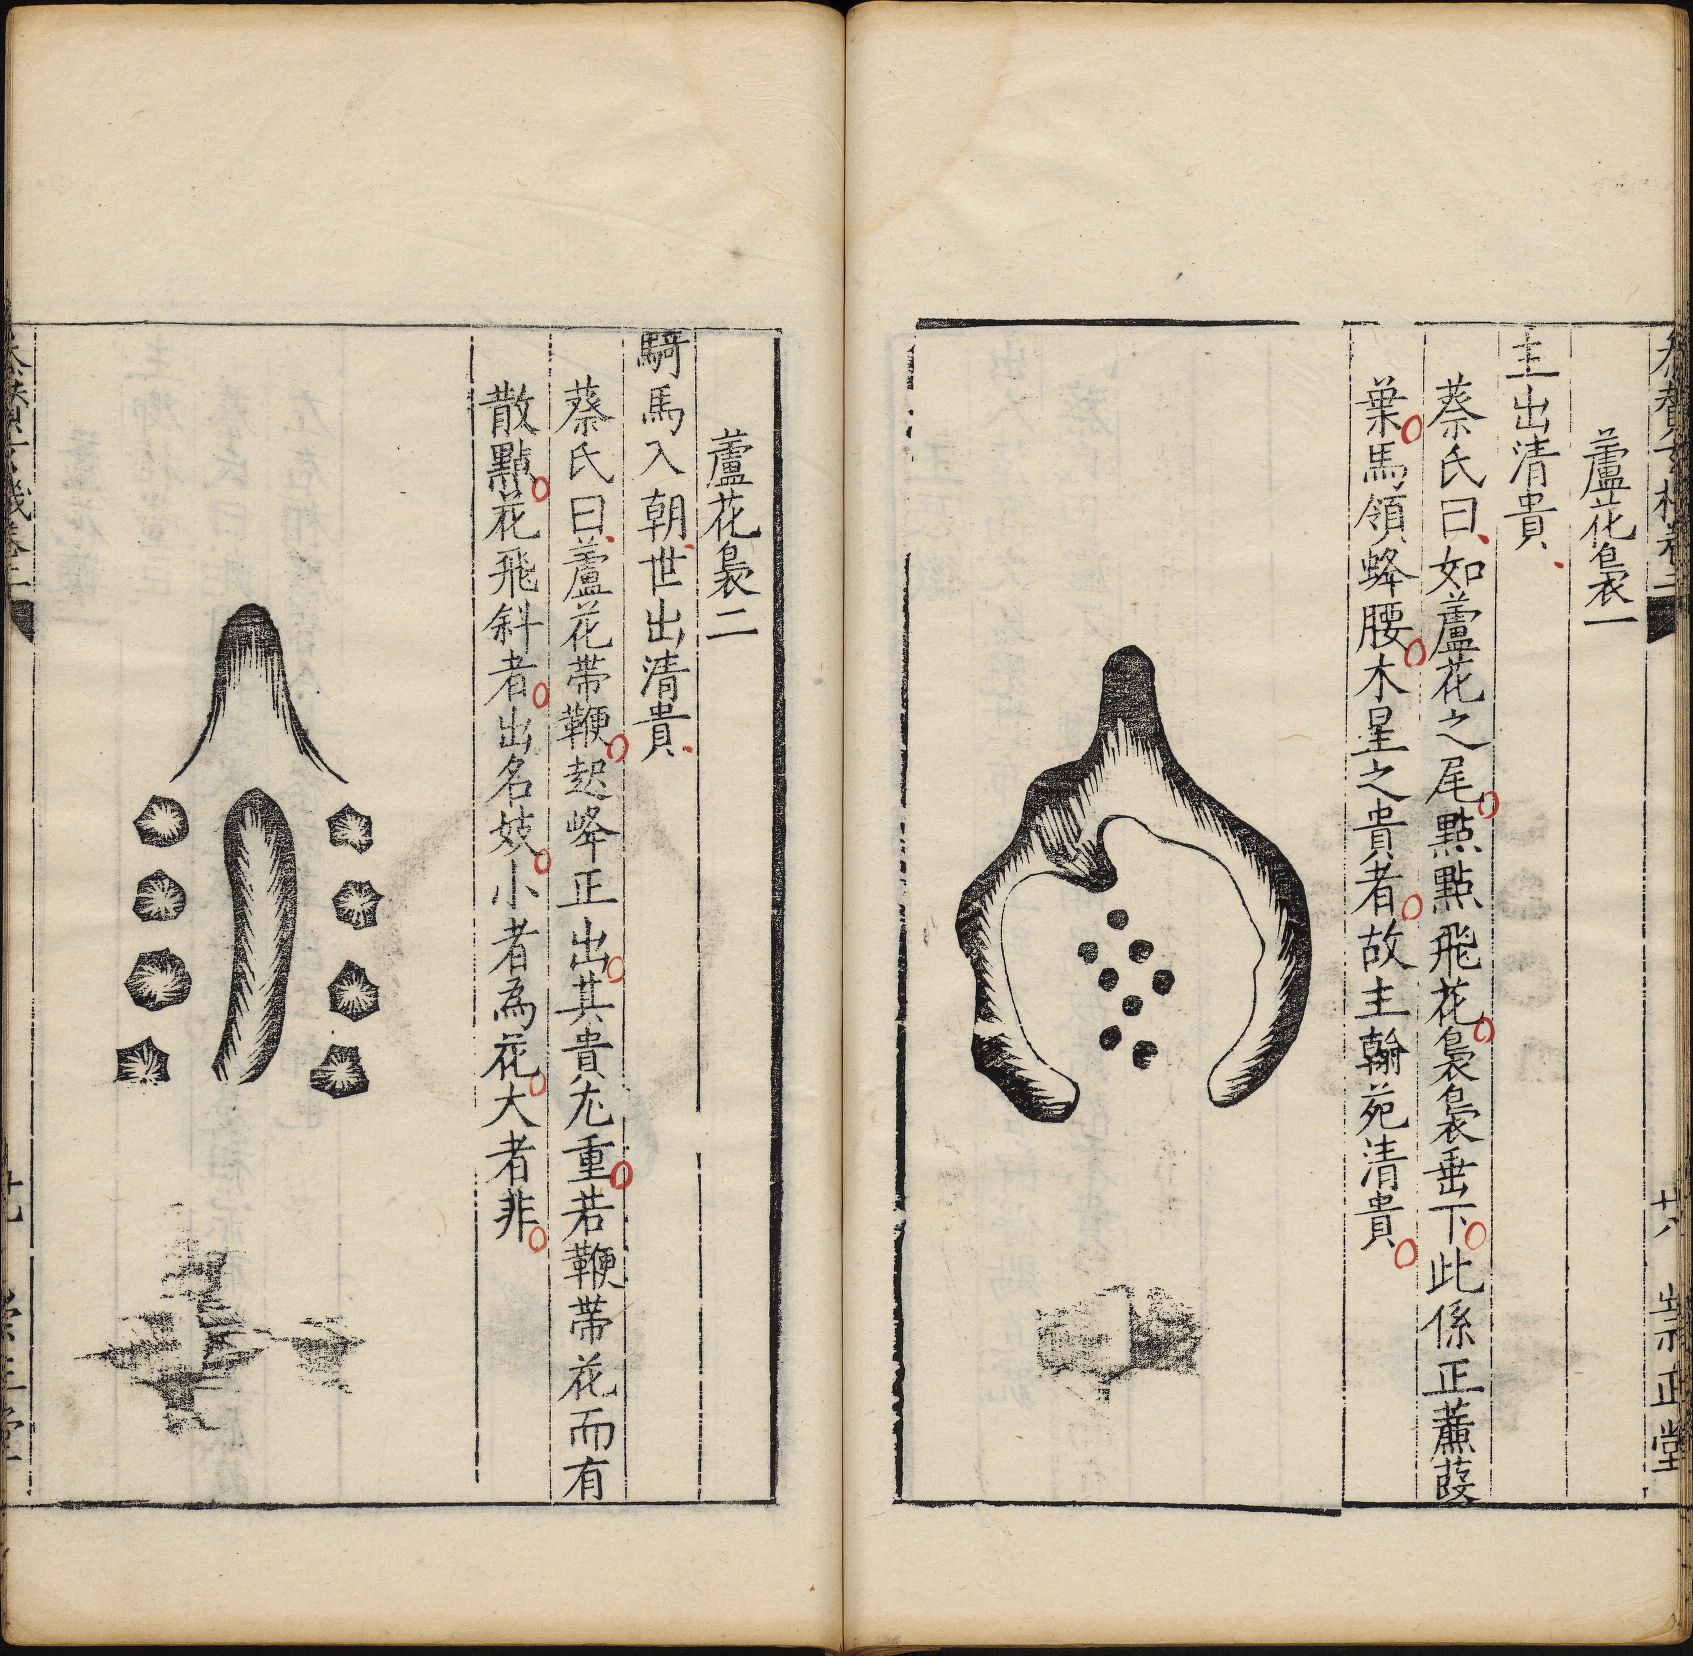 參贊玄機卷二
廿八 崇正堂
蘆花裊一
主出清貴
蔡氏曰如蘆花之尾點點飛花裊裊垂下此係正蘪葭
葉馬領蜂腰木星之貴者故主翰苑清貴
蘆花裊二
騎馬入朝世出清貴
蔡氏曰蘆花帯鞭起峰正出其貴尤重若鞭帯花而有
散點花飛斜者出名妓小者為花大者非